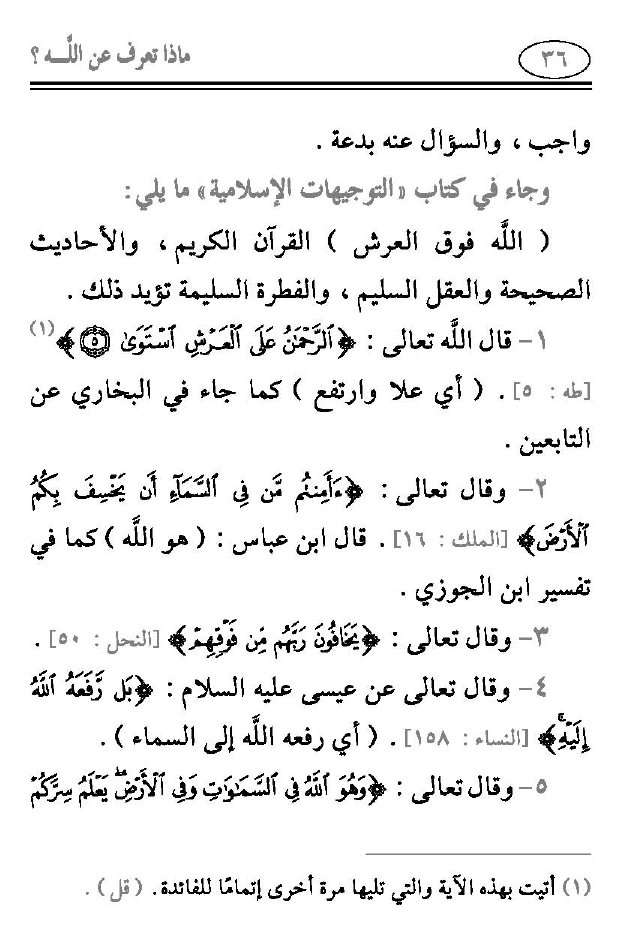 ٣٦
ماذا تعرف عن اللَّـــه ؟
واجب ، والسؤال عنه بدعة .
وجاء في كتاب «التوجيهات الإسلامية» ما يلي:
( اللَّه فوق العرش ) القرآن الكريم ، والأحاديث
الصحيحة والعقل السليم ، والفطرة السليمة تؤيد ذلك .
١- قال اللَّه تعالى : ﴿ٱلرَّحۡمَٰنُ عَلَى ٱلۡعَرۡشِ ٱسۡتَوَىٰ ٥﴾(١)
[طه : ٥] . ( أي علا وارتفع ) كما جاء في البخاري عن
التابعين .
٢- وقال تعالى : ﴿ءَأَمِنتُم مَّن فِي ٱلسَّمَآءِ أَن يَخۡسِفَ بِكُمُ
ٱلۡأَرۡضَ﴾ [الملك : ١٦] . قال ابن عباس : ( هو اللَّه ) كما في
تفسير ابن الجوزي .
٣- وقال تعالى : ﴿يَخَافُونَ رَبَّهُم مِّن فَوۡقِهِمۡ﴾ [النحل : ٥٠] .
٤- وقال تعالى عن عيسى عليه السلام : ﴿بَل رَّفَعَهُ ٱللَّهُ
إِلَيۡهِۚ﴾ [النساء : ١٥٨] . ( أي رفعه اللَّه إلى السماء ) .
٥- وقال تعالى : ﴿وَهُوَ ٱللَّهُ فِي ٱلسَّمَٰوَٰتِ وَفِي ٱلۡأَرۡضِۖ يَعۡلَمُ سِرَّكُمۡ
(١) أتيت بهذه الآية والتي تليها مرة أخرى إتمامًا للفائدة. ( قل ) .